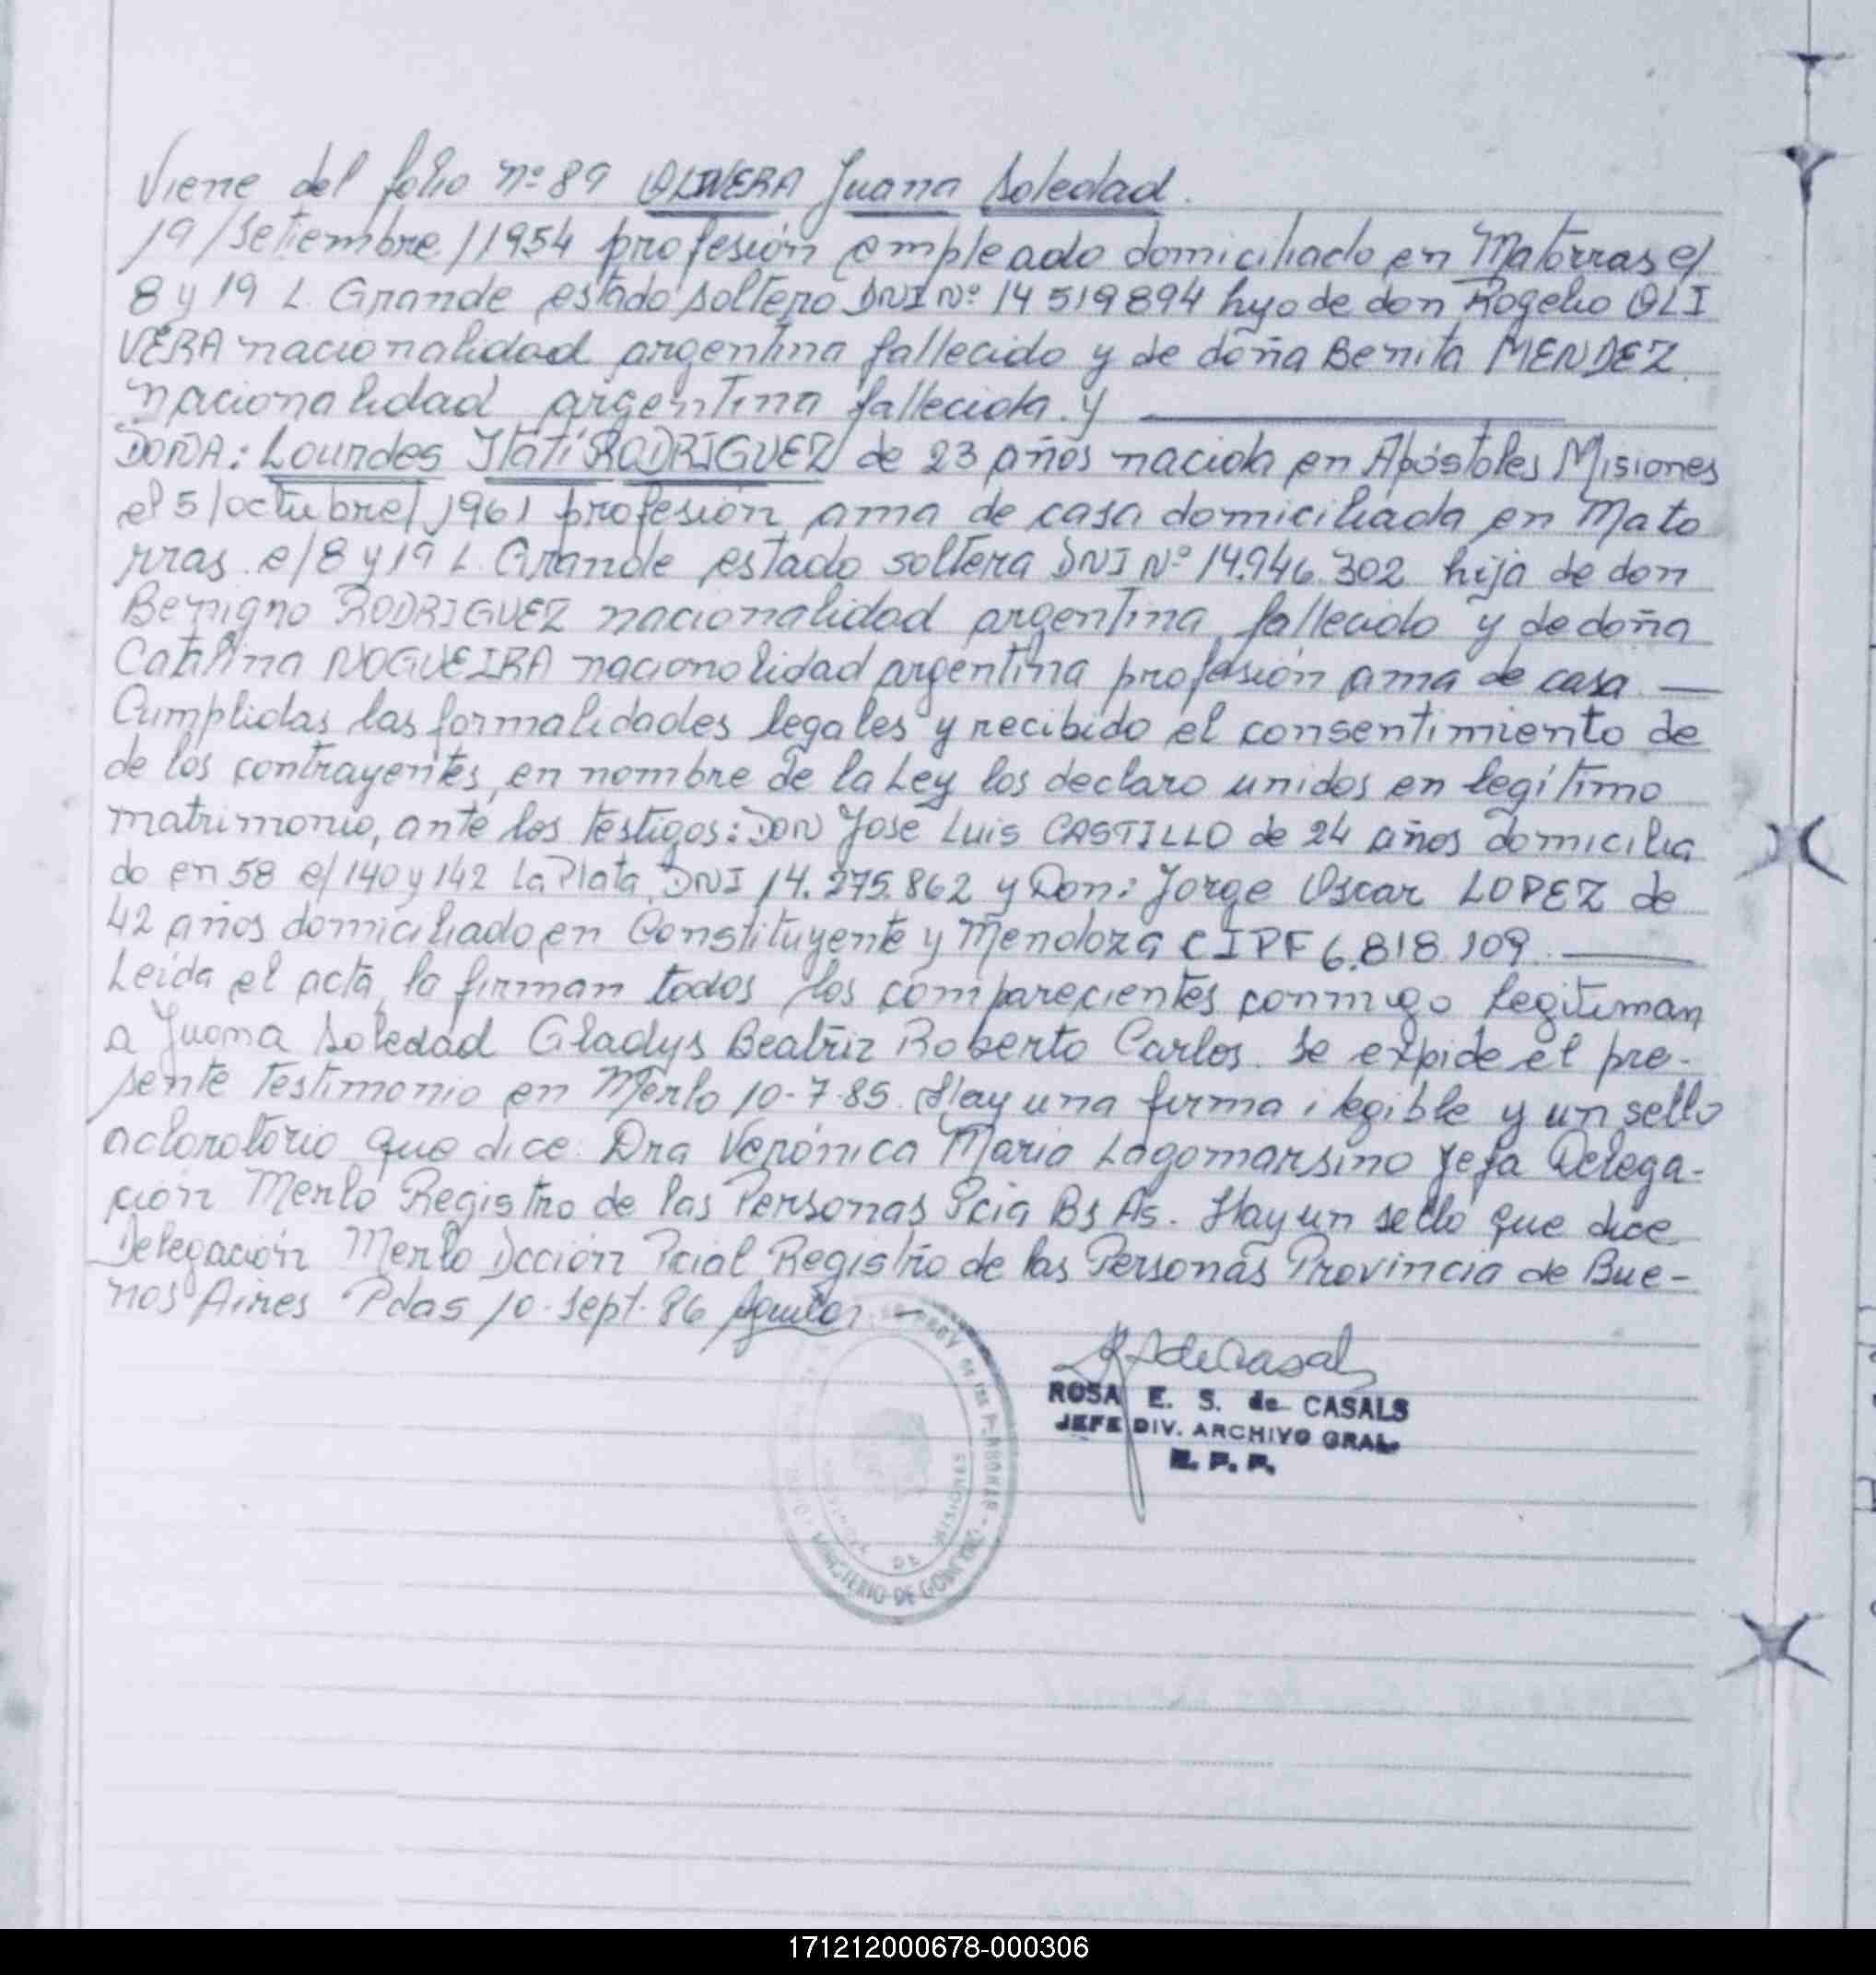 Viene del folio nº 89 OLIVERA Juana Soledad.
19/Setiembre/1954 profesión empleado domiciliado en Matorras e/
8 y 19 L. Grande estado soltero DNI Nº 14 519 894 hijo de don Rogelio OLI
VERA nacionalidad argentina fallecido y de doña Benita MENDEZ
nacionalidad argentina fallecida y
DOÑA: Lourdes Itatí RODRIGUEZ de 23 años nacida en Apóstoles Misiones
el 5/octubre/1961 profesión ama de casa domiciliada en Mato
rras e/8 y 19 L. Grande estado soltera DNI Nº 14.946.302 hija de don
Benigno RODRIGUEZ nacionalidad argentina fallecido y de doña
Catalina NOGUEIRA nacionalidad argentina profesión ama de casa
Cumplidas las formalidades legales y recibido el consentimiento de
de los contrayentes, en nombre de la Ley los declaro unidos en legítimo
matrimonio, ante los testigos: DON José Luis CASTILLO de 24 años domicilia
do en 58 e/140 y 142 La Plata, DNI 14.275.862 y Don: Jorge Oscar LOPEZ de
42 años domiciliado en Constituyente y Mendoza CIPF 6.818.109.
Leída el acta, la firman todos los comparecientes conmigo legitiman
a Juana Soledad Gladys Beatriz Roberto Carlos. Se expide el pre-
sente testimonio en Merlo 10-7-85. Hay una firma ilegible y un sello
aclaratorio que dice: Dra Verónica María Lagomarsino Jefa Delega-
ción Merlo Registro de las Personas Pcia Bs As. Hay un sello que dice
Delegación Merlo Dcción Pcial Registro de las Personas Provincia de Bue-
nos Aires Pdas 10-sept-86
ROSA E. S. de CASALS
JEFE DIV. ARCHIVO GRAL.
R. P. P.
MINISTERIO DE GOBIERNO
DE MISIONES
171212000678-000306